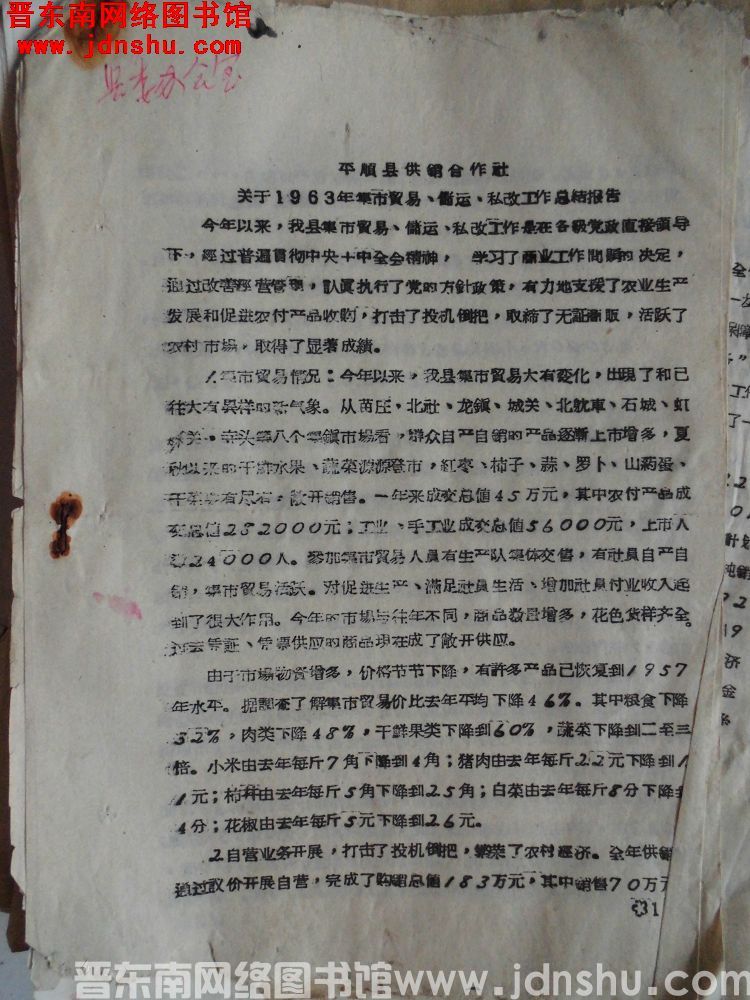 晋东南网络图书馆
www.jdnshu.com
县委办公室
平順县供銷合作社
关于1963年集市貿易、儲运、私改工作总結报告
今年以来，我县集市貿易、儲运、私改工作是在各級党政直接領导
下，經过普遍貫彻中央十中全会精神， 学习了商业工作問題的决定，
通过改善經营管理，認眞执行了党的方針政策，有力地支援了农业生产
发展和促进农付产品收购，打击了投机倒把，取締了无証商販，活跃了
农村市場，取得了显著成績。
1.集市貿易情况：今年以来，我县集市貿易大有变化，出現了和已
往大有異样的新气象。从苗庄、北社、龙鎮、城关、北躭車、石城、虹
关、寺头等八个集鎮市場看，群众自产自銷的产品逐漸上市增多，夏
秋以来的干鮮水果、蔬菜源源登市，紅枣、柿子、蒜、罗卜、山葯蛋、
干菜应有尽有，敞开銷售。一年来成交总値45万元，其中农付产品成
交总値282000元；工业、手工业成交总値56000元，上市人
24000人。参加集市貿易人員有生产队集体交售，有社員自产自
銷，集市貿易活跃。对促进生产、滿足社員生活、增加社員付业收入起
到了很大作用。今年的市場与往年不同，商品数量增多，花色貨样齐全。
过去凭証、凭票供应的商品現在成了敞开供应。
由于市場物資增多，价格节节下降，有許多产品已恢复到1957
年水平。据調查了解集市貿易价比去年平均下降46%。其中粮食下降
32%，肉类下降48%，干鮮果类下降到60%，蔬菜下降到二至三
倍。小米由去年每斤7角下降到4角；猪肉由去年每斤22元下降到1
1元；柿餅由去年每斤5角下降到25角；白菜由去年每斤8分下降到
4分；花椒由去年每斤5元下降到26元。
2自营业务开展，打击了投机倒把，繁荣了农村經济。全年供銷
通过議价开展自营，完成了购銷总値183万元，其中銷售70万元
31
晋东南网络图书馆www.jdnshu.com